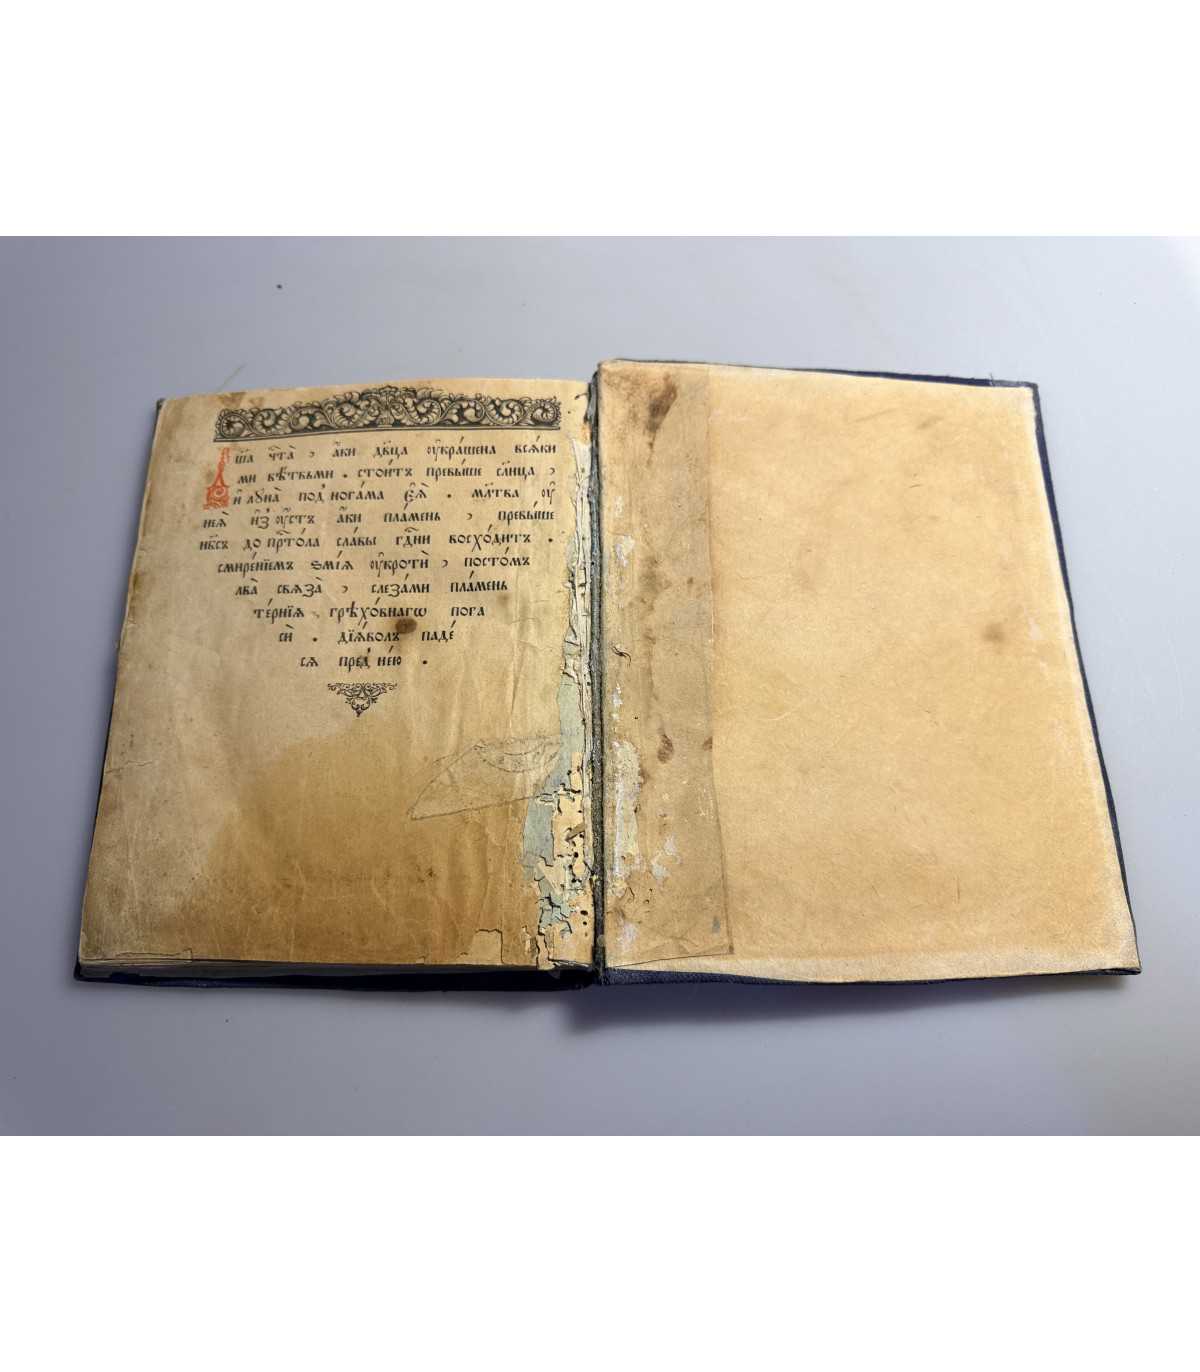 Дш҃а чⷭ҇та̀ , а҆́ки дв҃ца ᲂу҆кра́шена всѧ́ки
ми вѣ́твьми . стои́тъ превы́ше сл҃нца ,
и҆ лꙋна̀ под̾ нога́ма є҆ѧ̀ . мл҃тва ᲂу҆
неѧ̀ и҆з̾ ᲂу҆́стъ а҆́ки пла́мень , превы́ше
нб҃съ до прⷭ҇то́ла сла́вы гдⷭ҇ни восхо́дитъ .
смире́нїемъ ѕмі́ѧ ᲂу҆кротѝ , посто́мъ
льва̀ свѧза̀ , слеза́ми пла́мень
те́рнїѧ грѣхо́внагѡ пога
сѝ . дїѧ́волъ паде́
сѧ пред̾ не́ю .